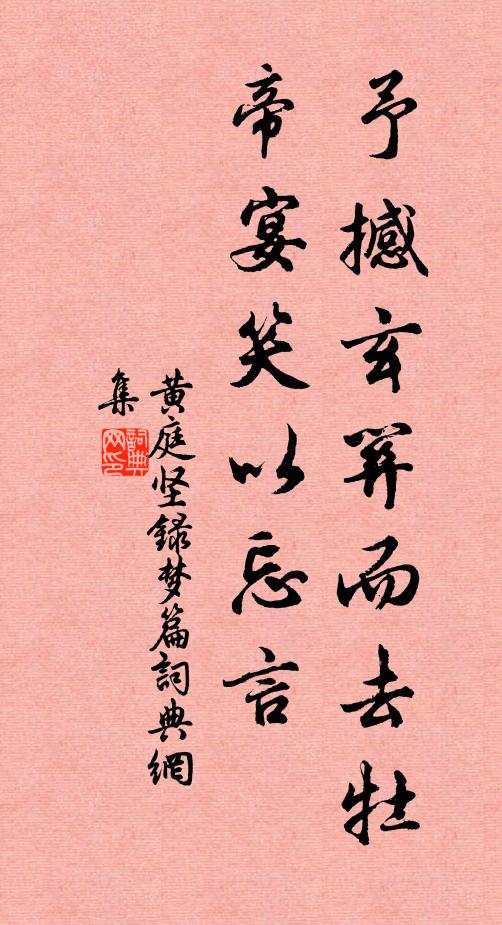 予撼玄関而去牡
帝宴笑以忘言
黄庭坚録梦篇詞典網
集
詞典网印